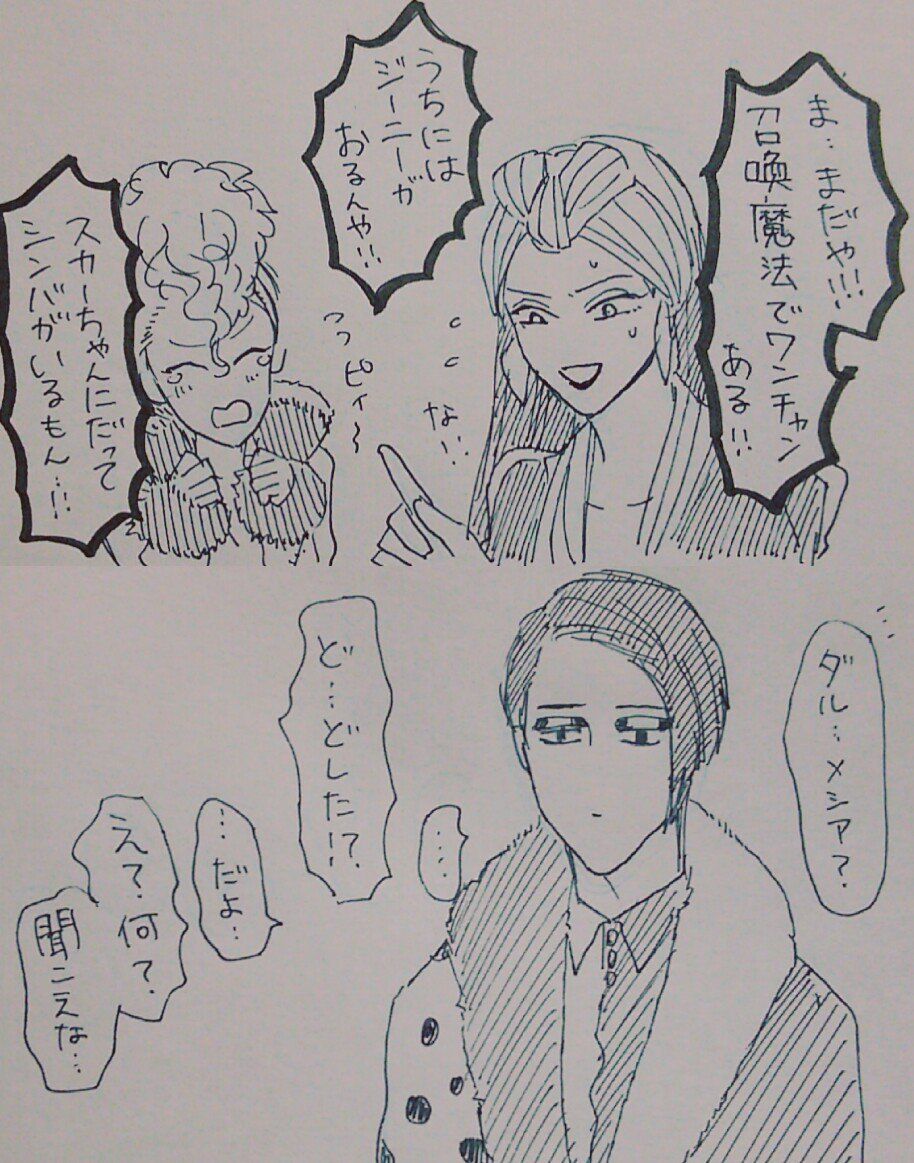 ま…まだや!!!
召喚魔法でワンチャン
ある!!
うちには
ジーニーが
おるんや!!
な!!
ピィ〜
スカーちゃんにだって
シンバがいるもん…!!
ダル…メシア?
…
ど…どした!?
…だよ…
え?何?
聞こえな…